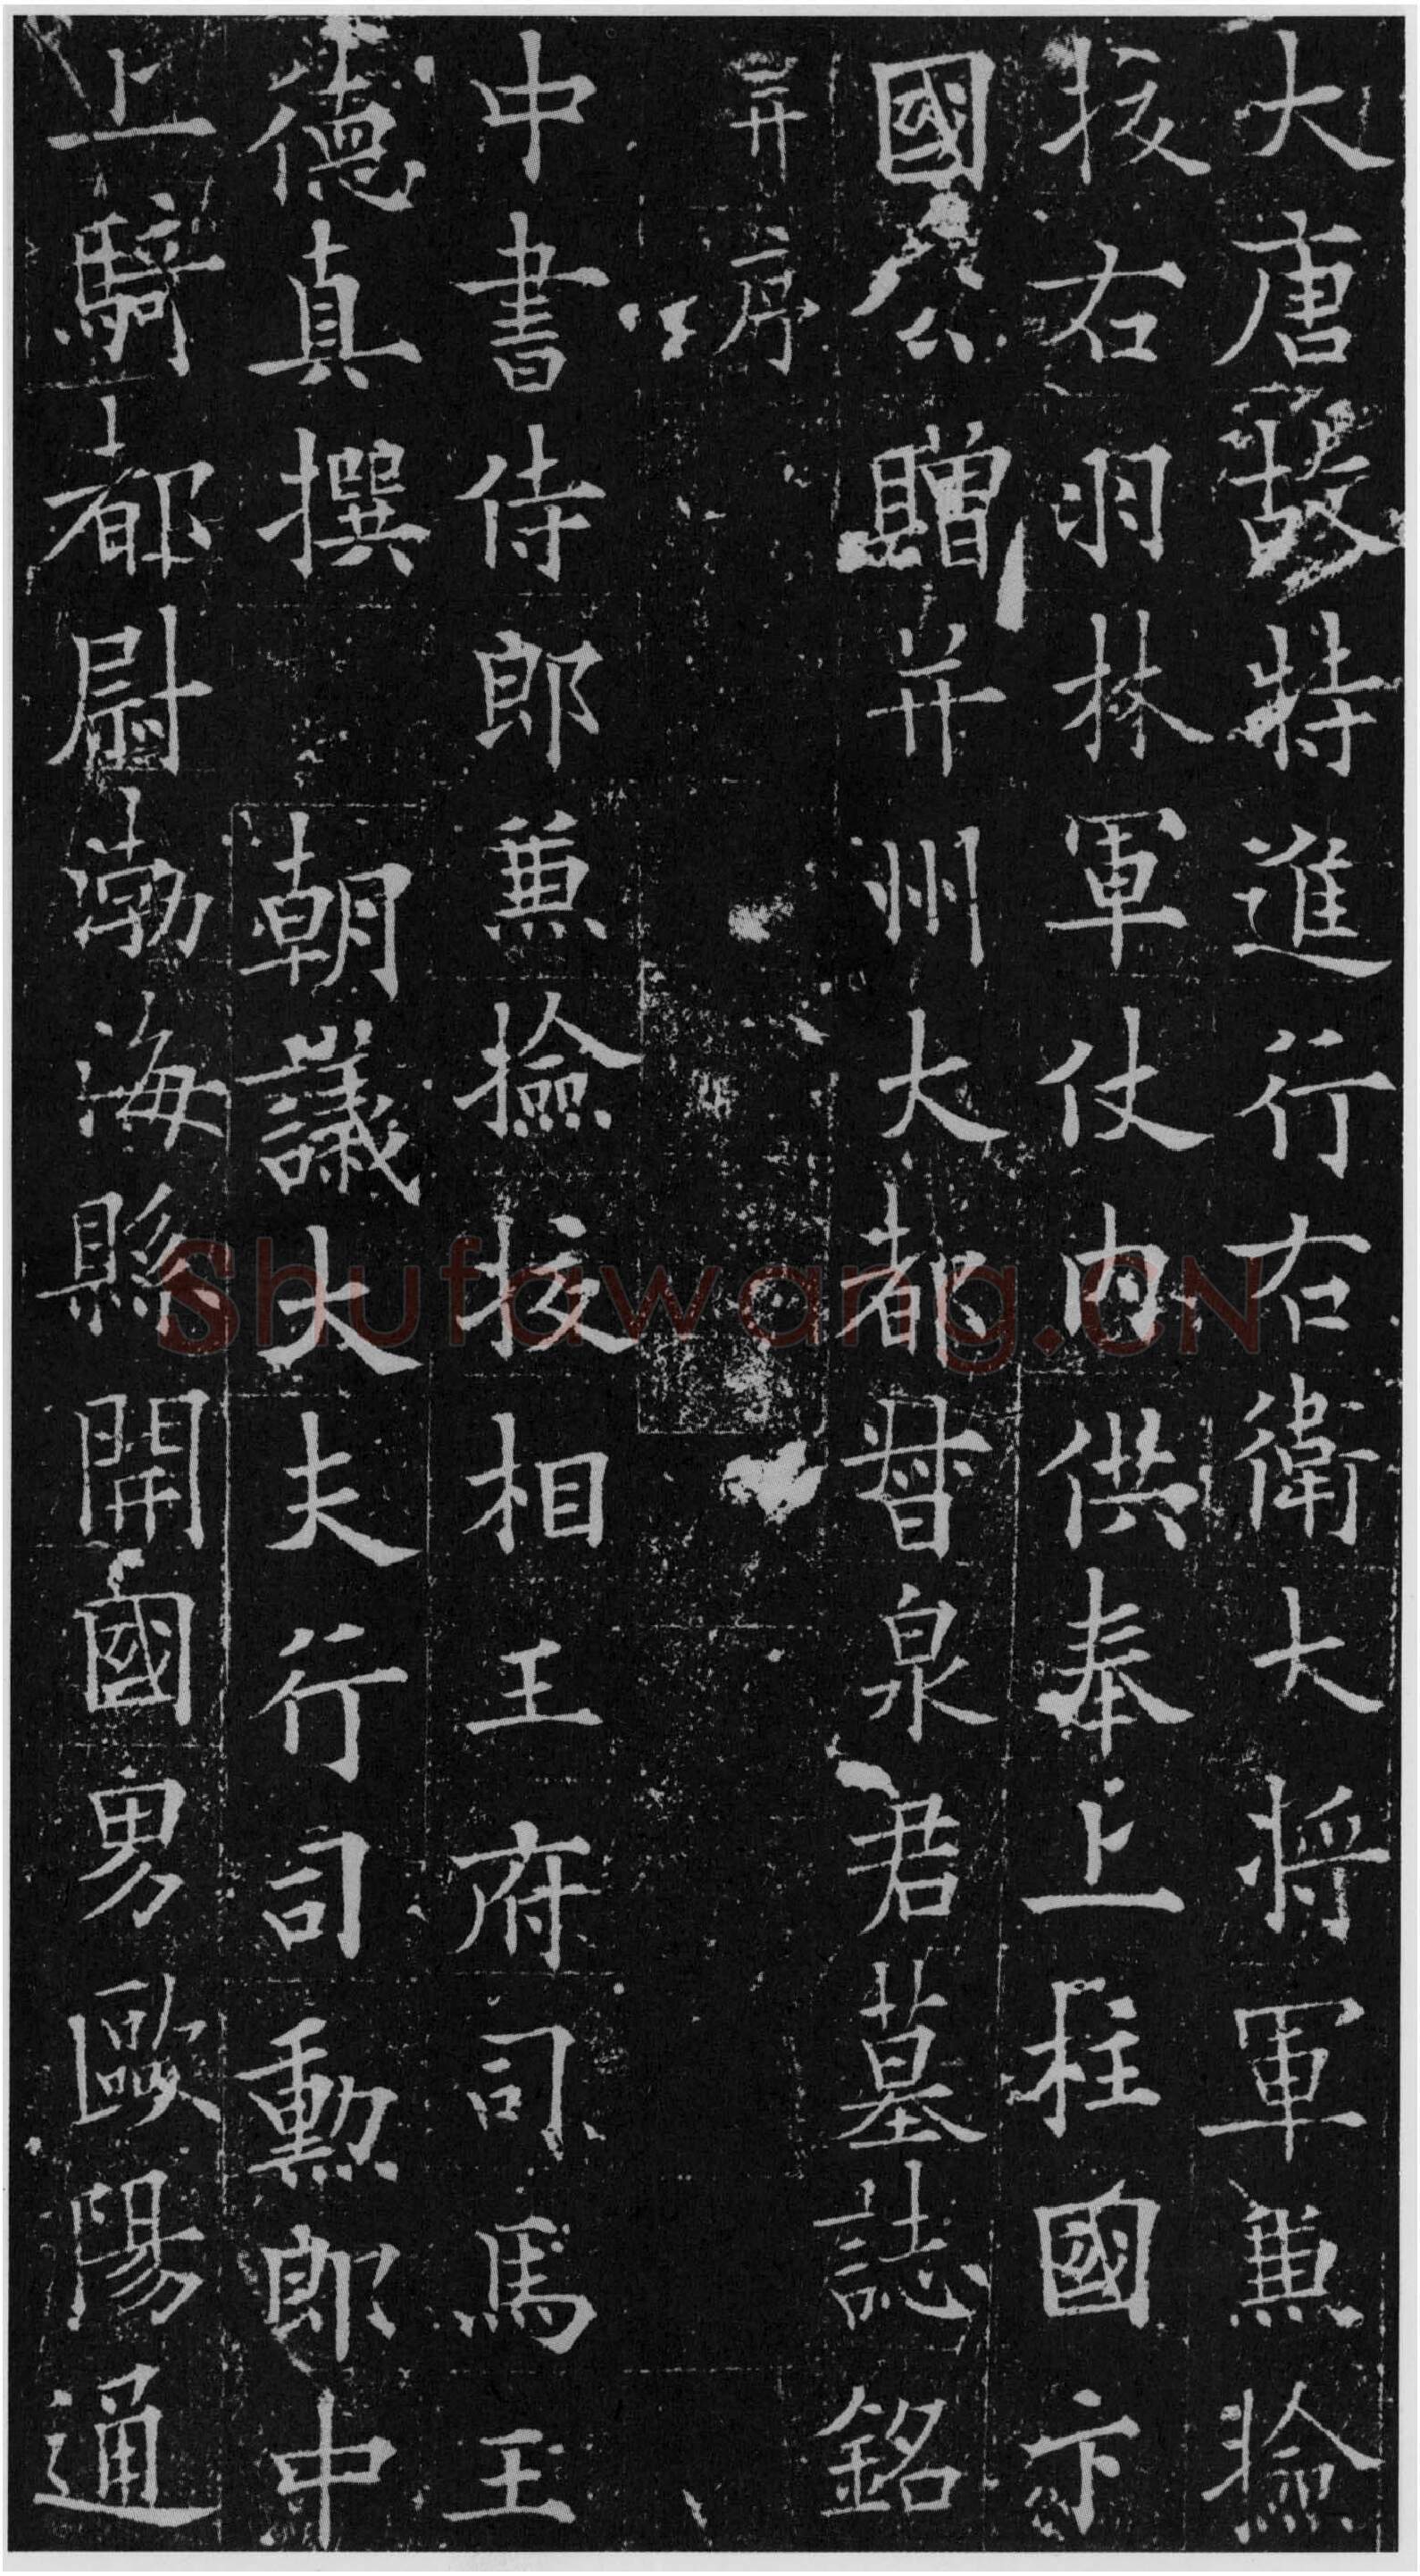 大唐故特進行右衛大將軍兼撿
挍右羽林軍仗內供奉上柱國卞
國公贈并州大都督泉君墓誌銘
并序
中書侍郎兼撿挍相王府司馬王
德真撰 朝議大夫行司勳郎中
上騎都尉渤海縣開國男歐陽通
Shufawang.CN